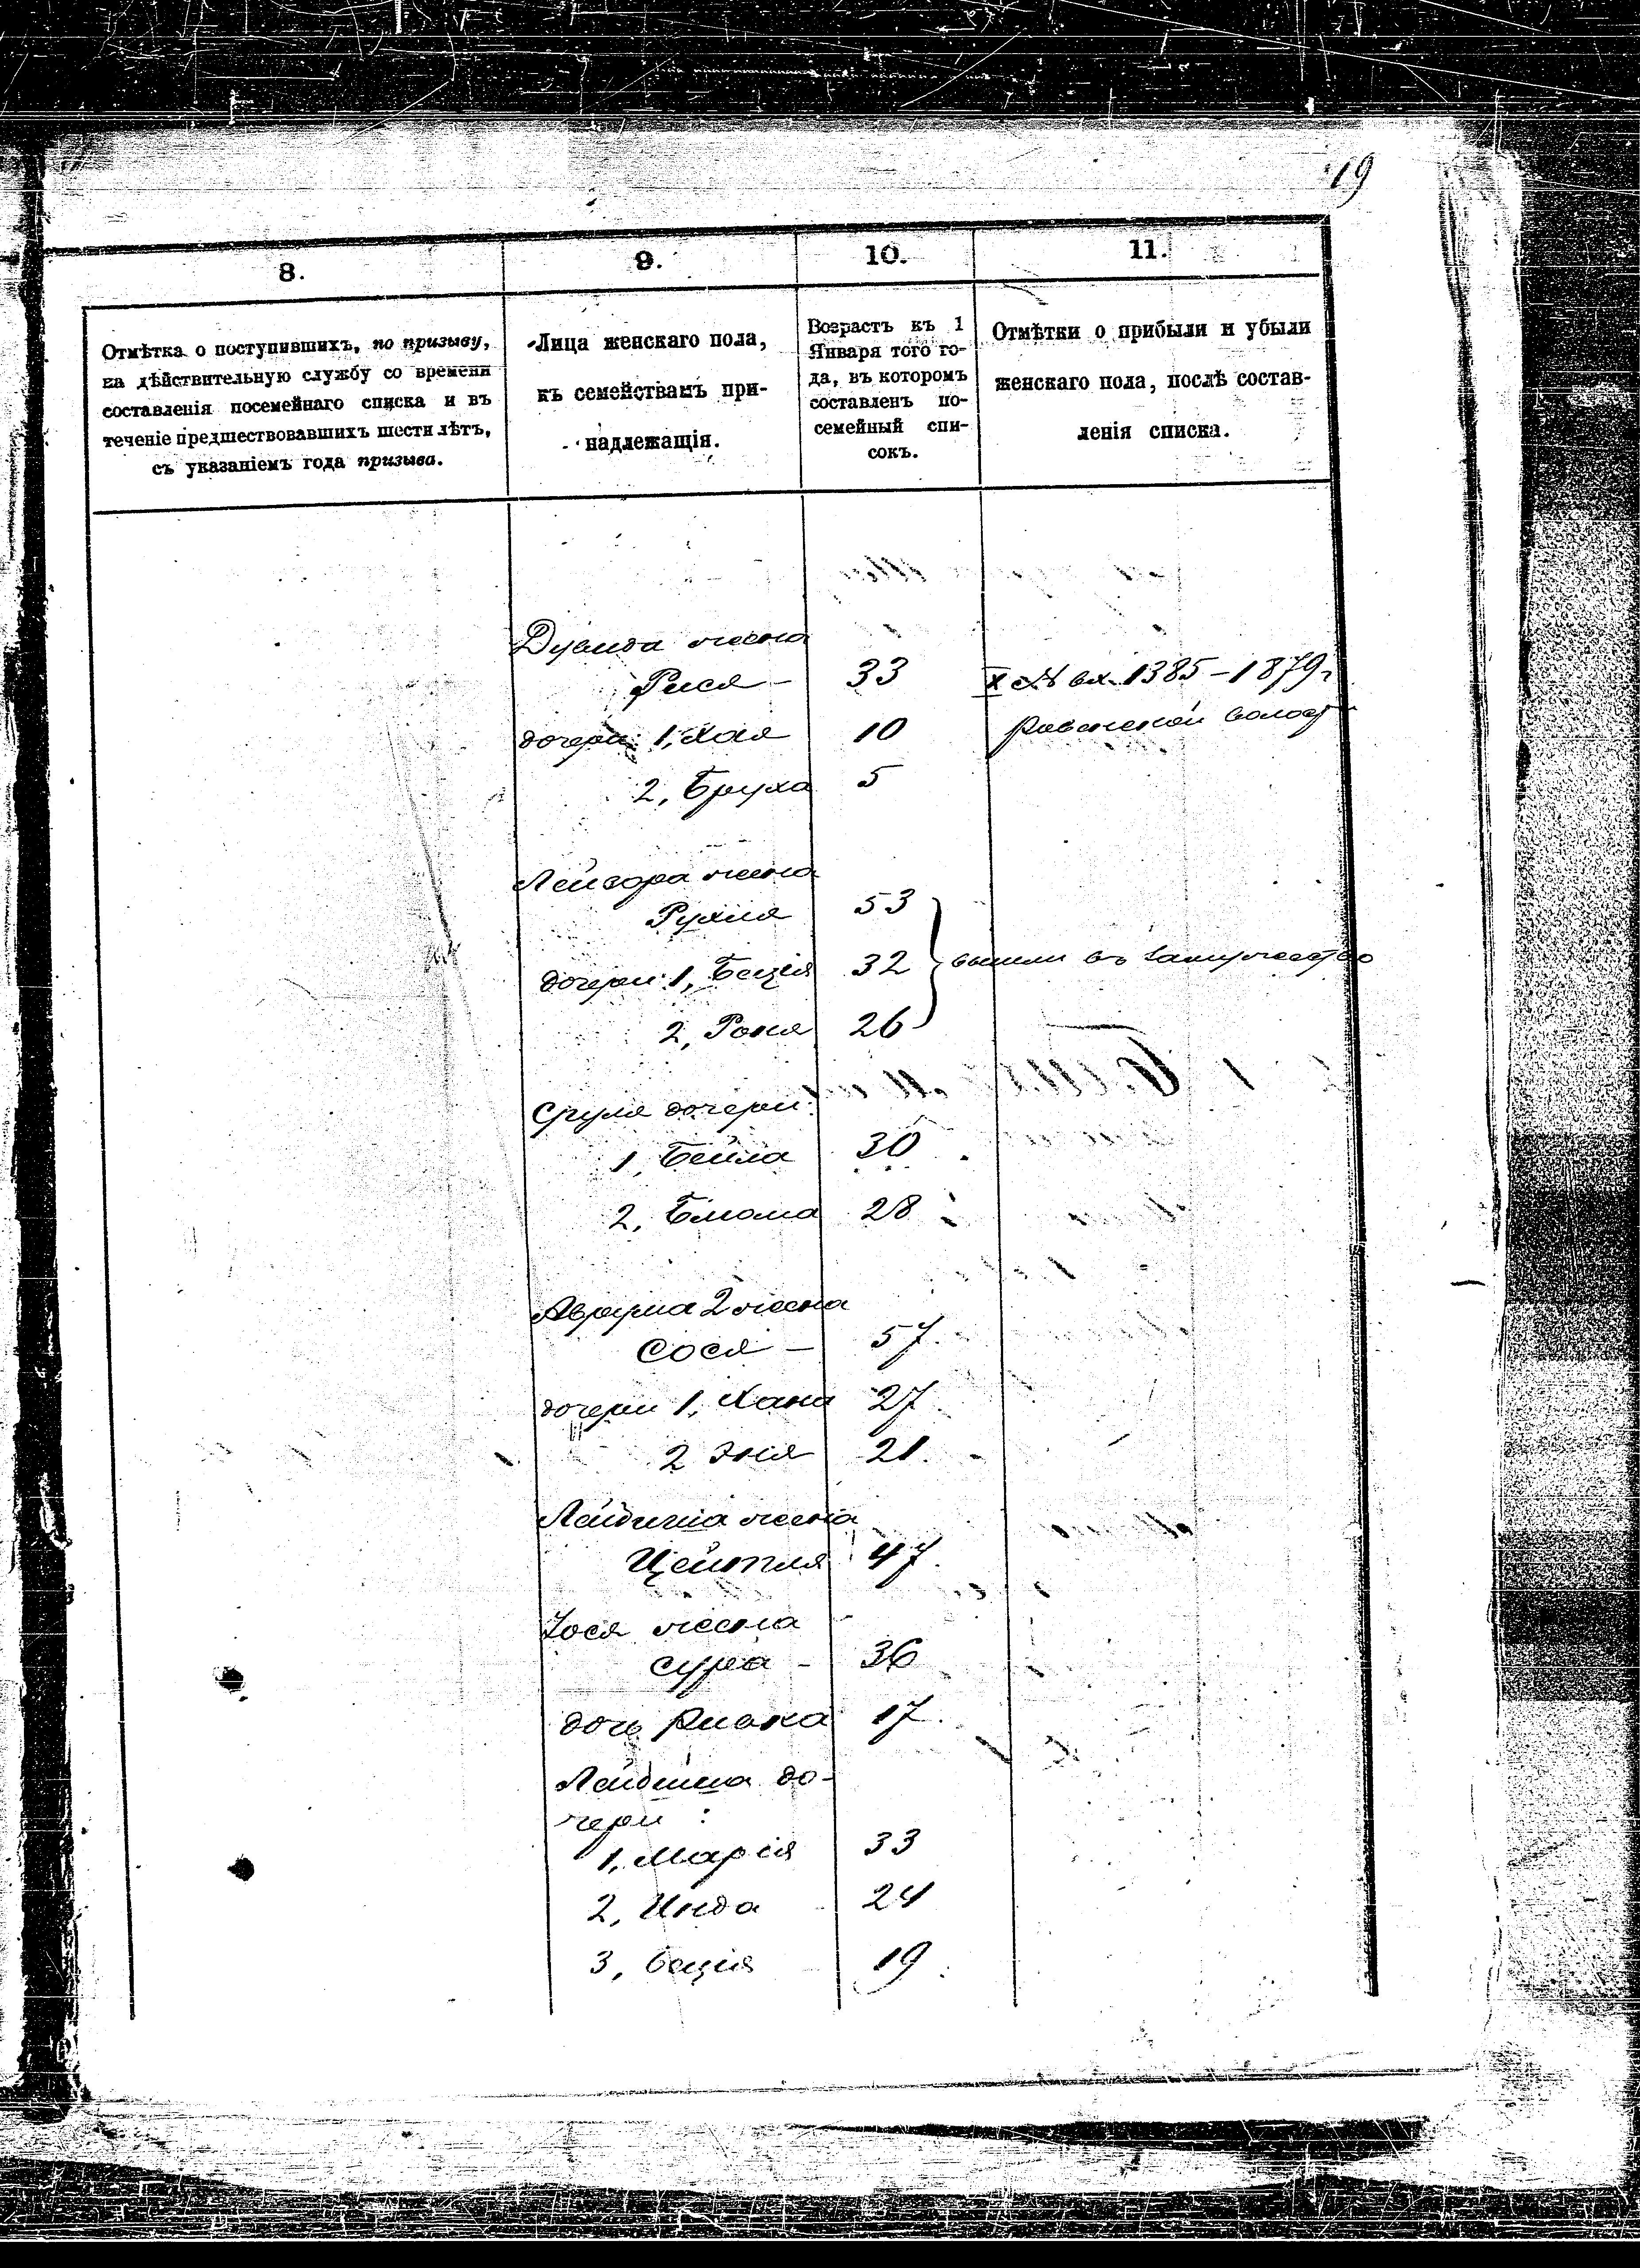 19
8.
9.
10.
11.
Отмѣтка о поступившихъ, по призыву,
на дѣйствительную службу со времени
составленія посемейнаго списка и въ
теченіе предшествовавшихъ шести лѣтъ,
съ указаніемъ года призыва.
Лица женскаго пола,
къ семействамъ при-
надлежащія.
Возрастъ къ 1
Января того го-
да, въ которомъ
составленъ по-
семейный спи-
сокъ.
Отмѣтки о прибыли и убыли
женскаго пола, послѣ состав-
ленія списка.
жена
Рися - 33 № вх. 1385 - 1879 г
дочери: 1, Хая 10 волост
2, Бруха 5
Лейзора жена
Рухля 53
дочери: 1, Бація 32 вышли въ замужество
2, Роня 26
Сруля дочери:
1, Бейла 30
2, 28
Аврума 2 жена
Сося - 57.
дочери 1, Хана 27.
2 Эня 21.
жена
Цейтля 47.
Іося жена
Сура - 36
дочь Ривка 17.
до-
чери :
1, Марія 33
2, Инда 24
3, Бація 19.